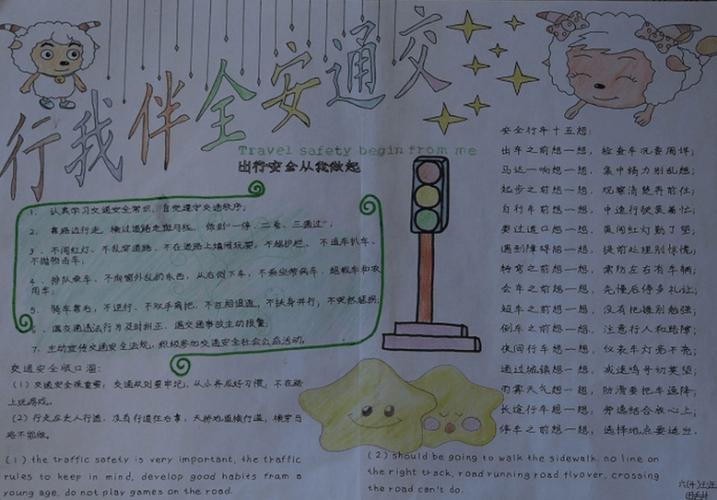 行我伴全安通交
Travel safety begin from me
出行安全从我做起
1、认真学习交通安全常识，自觉遵守交通秩序；
2、靠路边行走，横过道路走斑马线，做到“一停、二看、三通过”；
3、不闯红灯、不乱穿道路、不在道路上嬉闹玩耍、不翻护栏、不追车扒车、
不抛物击车；
4、排队乘车、不向窗外乱扔东西，从右侧下车，不乘坐带病车、超载车和农
用车；
5、骑车靠右，不逆行、不双手离把、不互相追逐，不扶身并行；不突然猛拐；
6、遇交通违法行为及时纠正、遇交通事故主动报警；
7、主动宣传交通安全法规，积极参加交通安全社会公益活动。
交通安全顺口溜：
(1) 交通安全很重要，交通规则要牢记，从小养成好习惯，不在路
上玩游戏。
(2) 行走应走人行道，没有行道往右靠，天桥地道横行道，横穿马
路不能做。
(1) the traffic safety is very important, the traffic
rules to keep in mind, develop good habits fram a
young age, do not play games on the road.
(2) should be going to walk the sidewalk, no line on
the right track, road running road flyover, crossing
the road can't do.
安全行车十五想：
出车之前想一想，检查车况要周详；
马达一响想一想，集中精力别乱想；
起步之前想一想，观察清楚再前往；
自行车前想一想，中速行驶莫着忙；
要过道口想一想，莫闯红灯勤了望；
遇到障碍想一想，提前处理别惊慌；
转弯之前想一想，需防左右有车辆；
会车之前想一想，先慢后停多礼让；
超车之前想一想，没有把握别勉强；
倒车之前想一想，注意行人和路障；
夜间行车想一想，仪表车灯亮不亮；
通过城镇想一想，减速鸣号切莫望；
雨雾天气想一想，防滑要把车速降；
长途行车想一想，劳逸结合放心上；
停车之前想一想，选择地点要适当。